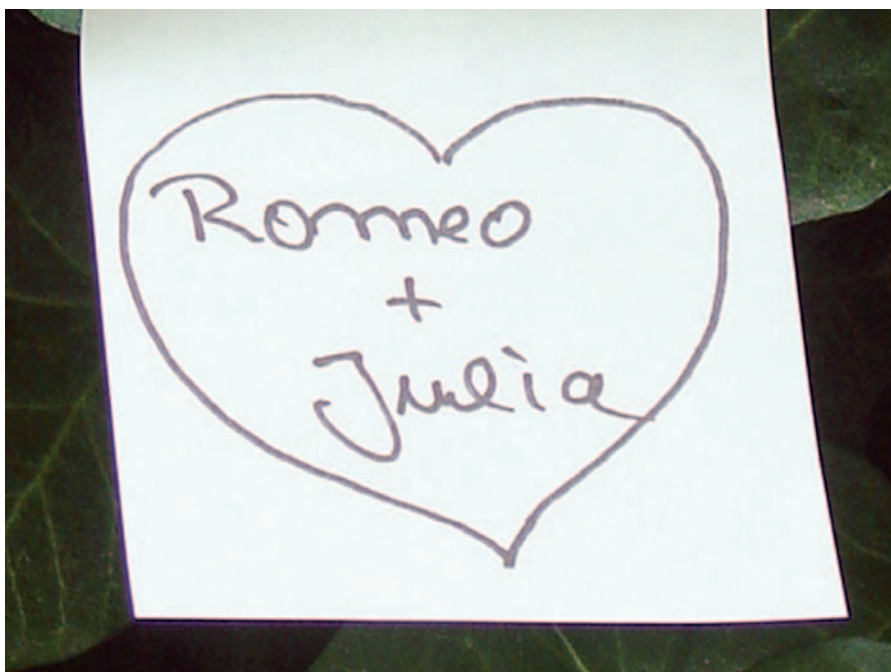 Romeo
+
Julia